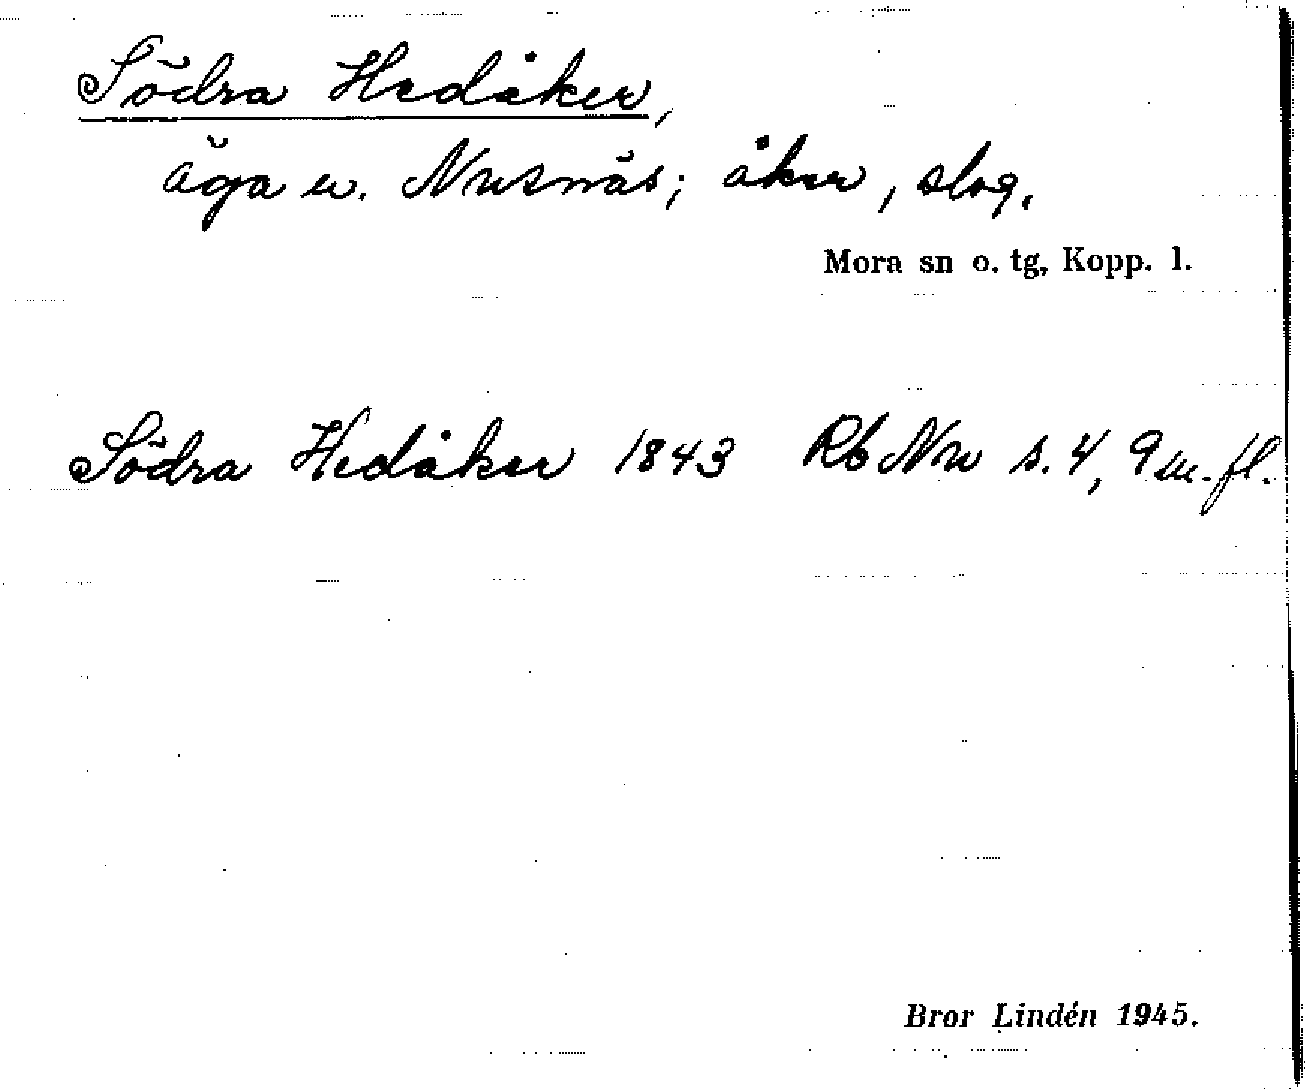 Södra Hedåker,
äga u. Nusnäs; åker, slog.
Mora sn o. tg, Kopp. l.
Södra Hedåker 1843 Rb Nu s. 4, 9 m. fl.
Bror Lindén 1945.